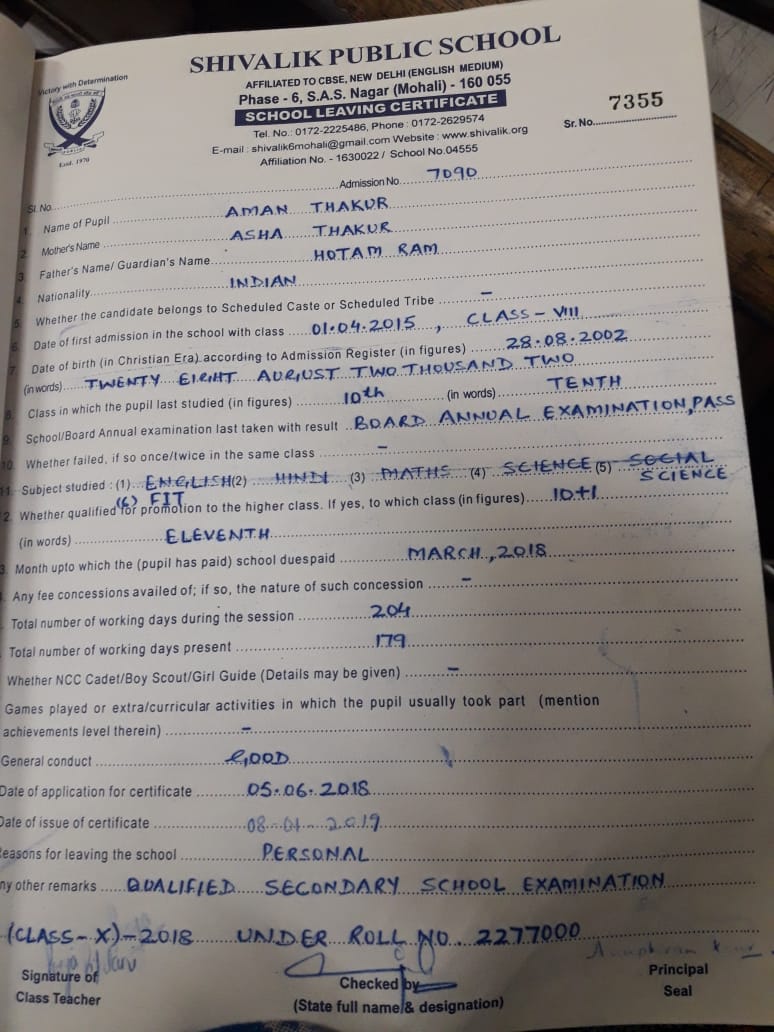 SHIVALIK PUBLIC SCHOOL
Victory with Determination
AFFILIATED TO CBSE, NEW DELHI (ENGLISH MEDIUM)
Phase - 6, S.A.S. Nagar (Mohali) - 160 055
SCHOOL LEAVING CERTIFICATE
Tel. No.: 0172-2225486, Phone : 0172-2629574
E-mail : shivalik6mohali@gmail.com Website : www.shivalik.org
Affiliation No. - 1630022 / School No.04555
Estd. 1970
7355
Sr. No.
Sl. No. Admission No. 7090
1. Name of Pupil AMAN THAKUR
2. Mother's Name ASHA THAKUR
3. Father's Name/ Guardian's Name HOTAM RAM
4. Nationality INDIAN
5. Whether the candidate belongs to Scheduled Caste or Scheduled Tribe –
6. Date of first admission in the school with class 01.04.2015, CLASS-VIII
7. Date of birth (in Christian Era) according to Admission Register (in figures) 28.08.2002
(in words) TWENTY EIGHT AUGUST TWO THOUSAND TWO
8. Class in which the pupil last studied (in figures) 10th (in words) TENTH
9. School/Board Annual examination last taken with result BOARD ANNUAL EXAMINATION, PASS
10. Whether failed, if so once/twice in the same class –
11. Subject studied : (1) ENGLISH (2) HINDI (3) MATHS (4) SCIENCE (5) SOCIAL SCIENCE
(6) FIT
2. Whether qualified for promotion to the higher class. If yes, to which class (in figures) 10+1
(in words) ELEVENTH
3. Month upto which the (pupil has paid) school duespaid MARCH, 2018
Any fee concessions availed of; if so, the nature of such concession –
Total number of working days during the session 204
Total number of working days present 179
Whether NCC Cadet/Boy Scout/Girl Guide (Details may be given) –
Games played or extra/curricular activities in which the pupil usually took part (mention
achievements level therein) –
General conduct GOOD
Date of application for certificate 05.06.2018
Date of issue of certificate 08-01-2019
Reasons for leaving the school PERSONAL
ny other remarks QUALIFIED SECONDARY SCHOOL EXAMINATION
(CLASS-X)-2018 UNDER ROLL NO. 2277000
Signature of
Class Teacher
Checked by
(State full name & designation)
Principal
Seal